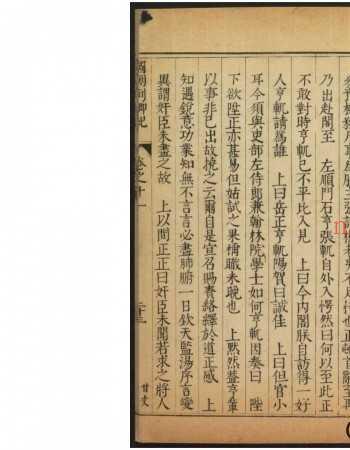 乃出赴閣至　左順門石亨張軏自外入愕然曰何以至此正
不敢對時亨軏已不平比入見　上曰今内閣朕自訪得一好
人亨軏請爲誰　上曰岳正亨軏陽賀曰誠佳　上曰但官小
耳今須與吏部左侍郎兼翰林院學士如何亨軏因奏曰　陛
下欲陞正亦甚易但姑試之果稱職未晚也　上默然蓋亨軰
以事非已出故撓之云爾自是宣召賜賚絡繹於道正感　上
知遇銳意功業知無不言言必盡肺腑一日欽天監湯序言變
異謂奸臣未盡之故　上以問正正曰奸臣未聞若求之將人
國朝列卿紀　卷之十一　二十三